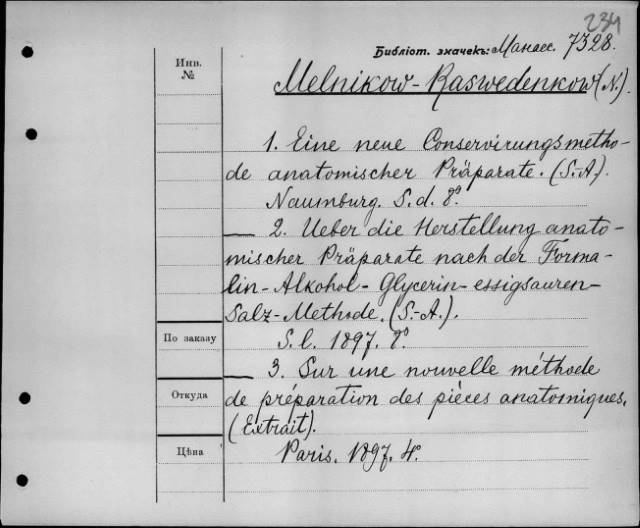 234
Библіот. значекъ: Манасс. 7328.
Инв.
№
Melnikow-Raswedenkow (N.).
1. Eine neue Conservirungsmetho-
de anatomischer Präparate. (S.-A.).
Naumburg. S. d. 8º
— 2. Ueber die Herstellung anato-
mischer Präparate nach der Forma-
lin-Alkohol-Glycerin-essigsauren-
Salz-Methode. (S.-A.).
По заказу
S. l. 1897. 8º
— 3. Sur une nouvelle méthode
Откуда
de préparation des pièces anatomiques.
(Extrait).
Цѣна
Paris. 1897. 4º